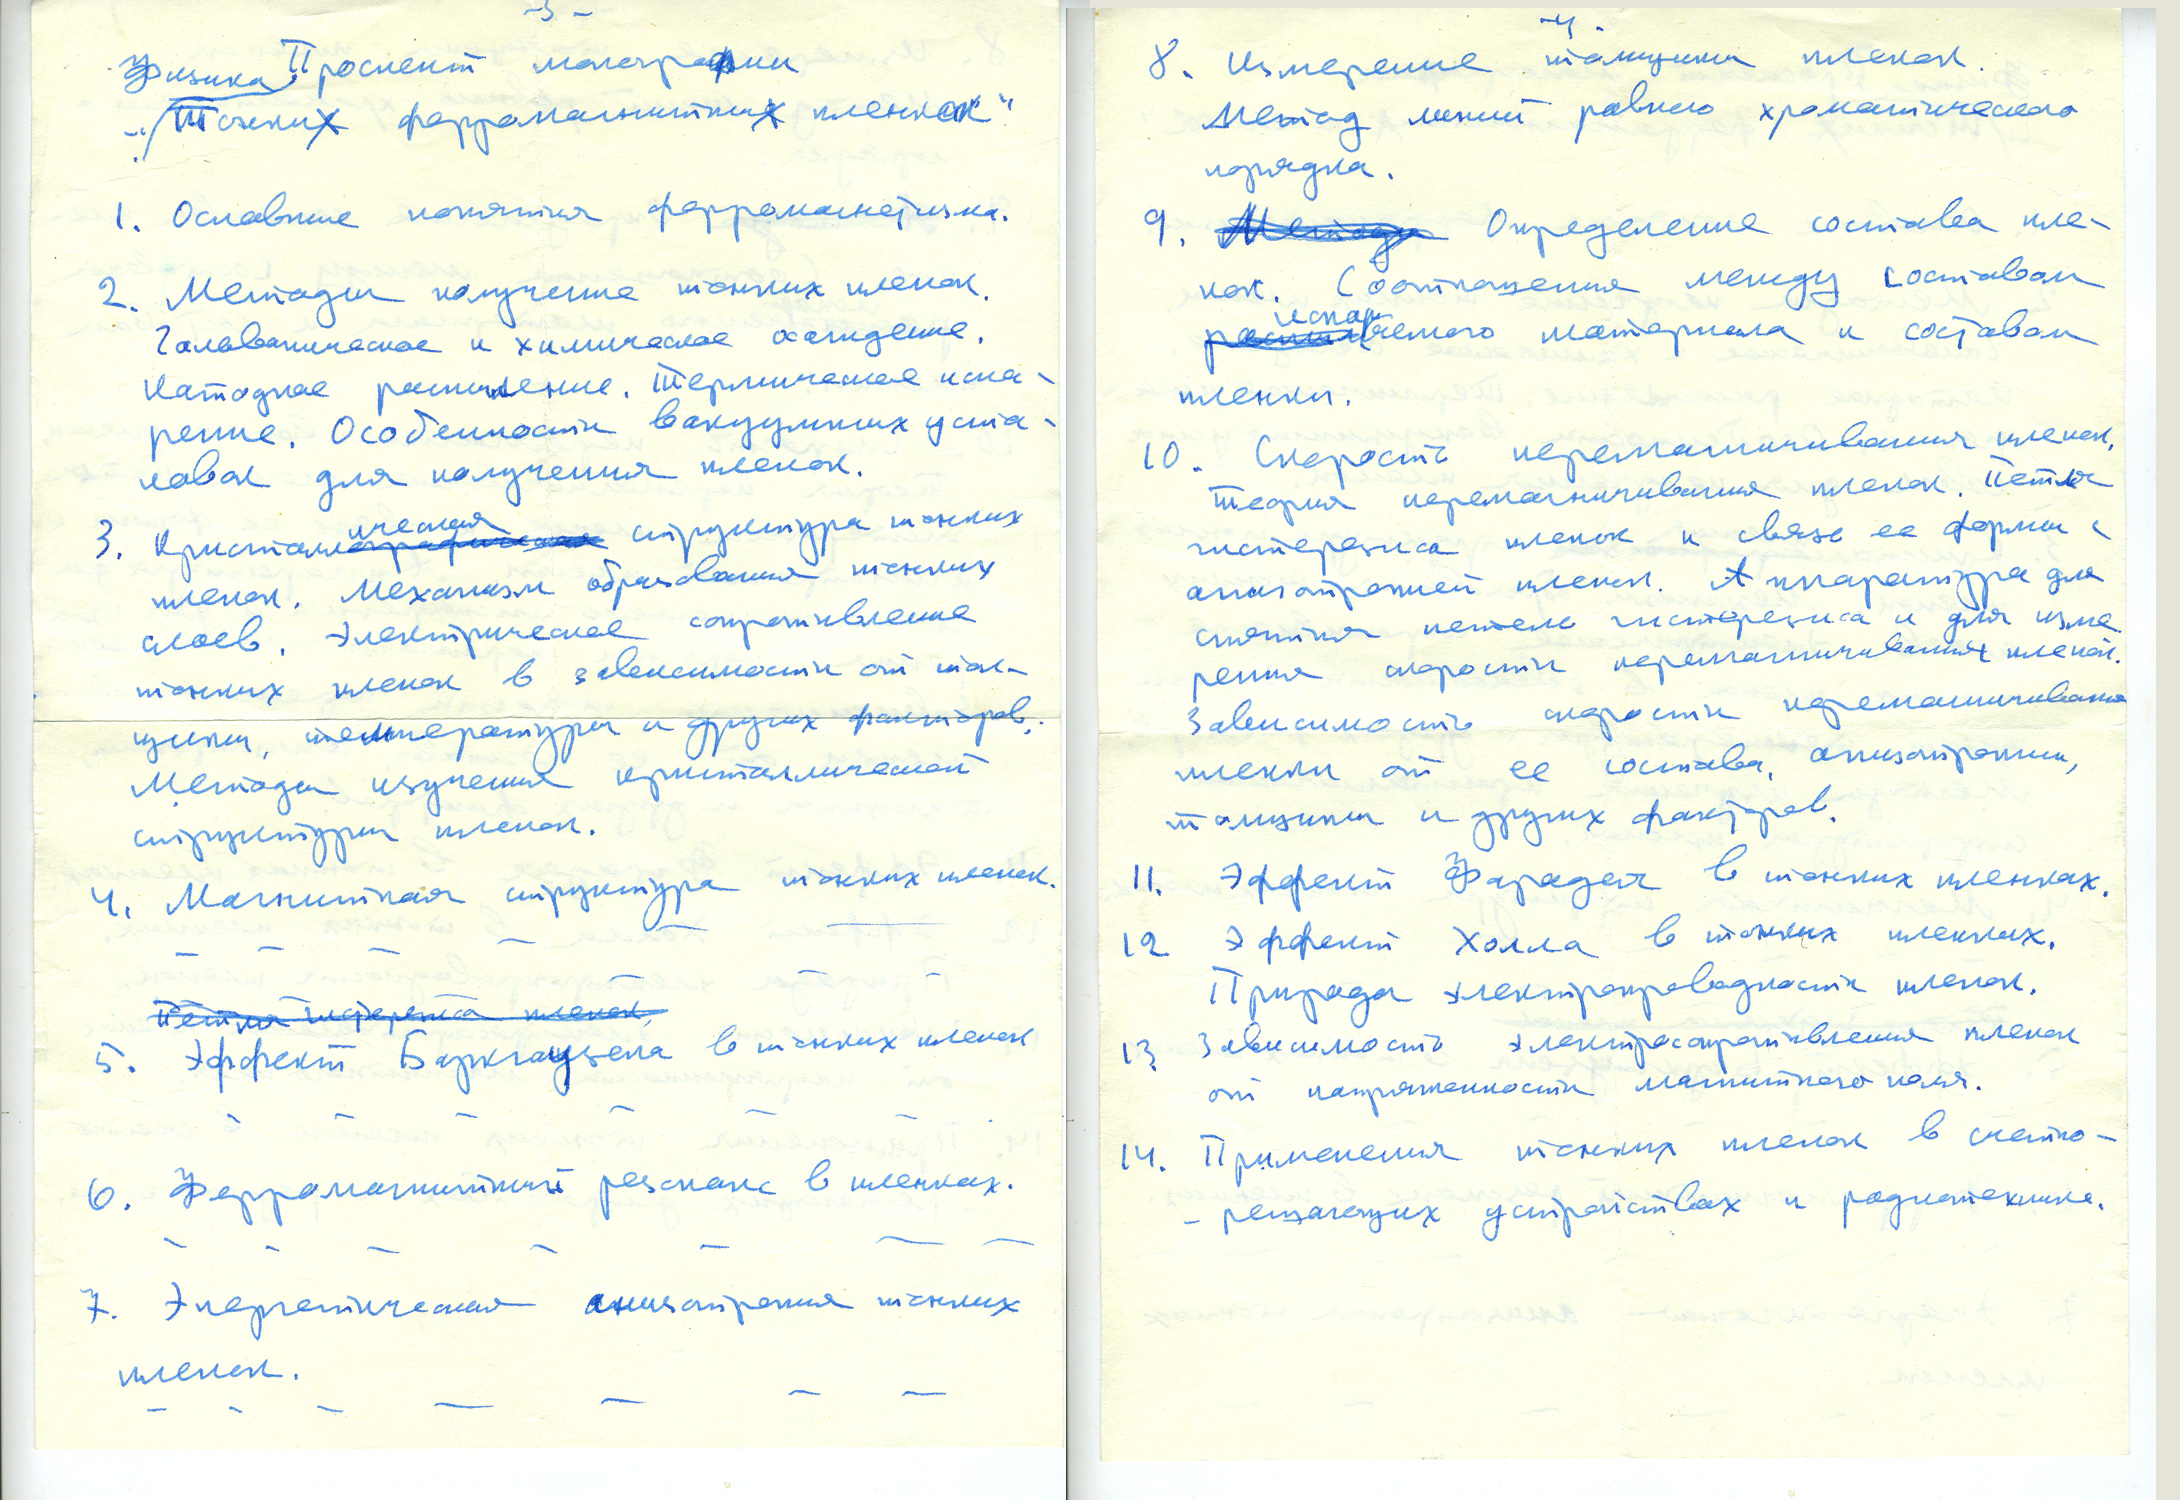 -3-
Проспект монографии
Физика
„Тонких ферромагнитных пленок"
1. Основные понятия ферромагнетизма.
2. Методы получение тонких пленок.
Гальваническое и химическое осаждение.
Катодное распыление. Термическое испа-
рение. Особенности вакуумных уста-
новок для получения пленок.
3. Кристаллическая структура тонких
пленок. Механизм образования тонких
слоев. Электрическое сопротивление
тонких пленок в зависимости от тол-
щины, температуры и других факторов.
Методы изучения кристаллической
структуры пленок.
4. Магнитная структура тонких пленок.
Петля гистерезиса пленок.
5. Эффект Баркгаузена в тонких пленок
6. Ферромагнитный резонанс в пленках.
7. Энергетическая анизотропия тонких
пленок.
-4-
8. Измерение толщины пленок.
Метод линий равного хроматического
порядка.
9. Методы Определение состава пле-
нок. Соотношения между составом
испаряемого материала и составом
пленки.
10. Скорость перемагничивания пленок.
Теория перемагничивания пленок. Петля
гистерезиса пленок и связь ее формы с
анизотропией пленок. Аппаратура для
снятия петель гистерезиса и для изме
рения скорости перемагничивания пленок.
Зависимость скорости перемагничивания
пленки от ее состава, анизотропии,
толщины и других факторов.
11. Эффект Фарадея в тонких пленках.
12 Эффект Холла в тонких пленках.
Природа электропроводности пленок.
13 Зависимость электросопротивления пленок
от напряженности магнитного поля.
14. Применения тонких пленок в счетно-
-решающих устройствах и радиотехнике.